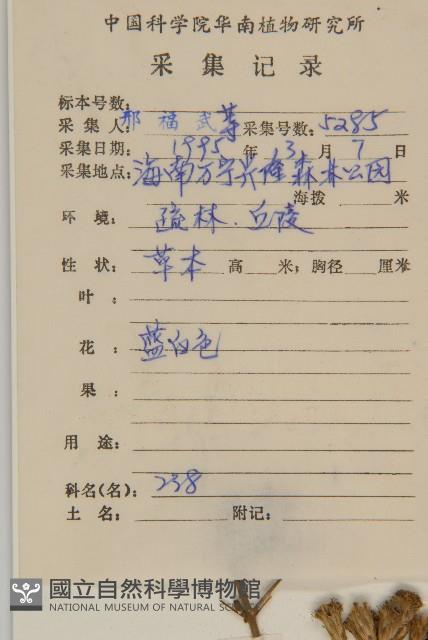 中国科学院华南植物研究所
采集记录
标本号数：
采集人：邢福武等 采集号数：5285
采集日期：1995年3月7日
采集地点：海南万宁兴隆森林公园
海拨 米
环境：疏林.丘陵
性状：草本 高 米；胸径 厘米
叶：
花：蓝白色
果：
用途：
科名(名)：238
土名： 附记：
國立自然科學博物館
NATIONAL MUSEUM OF NATURAL